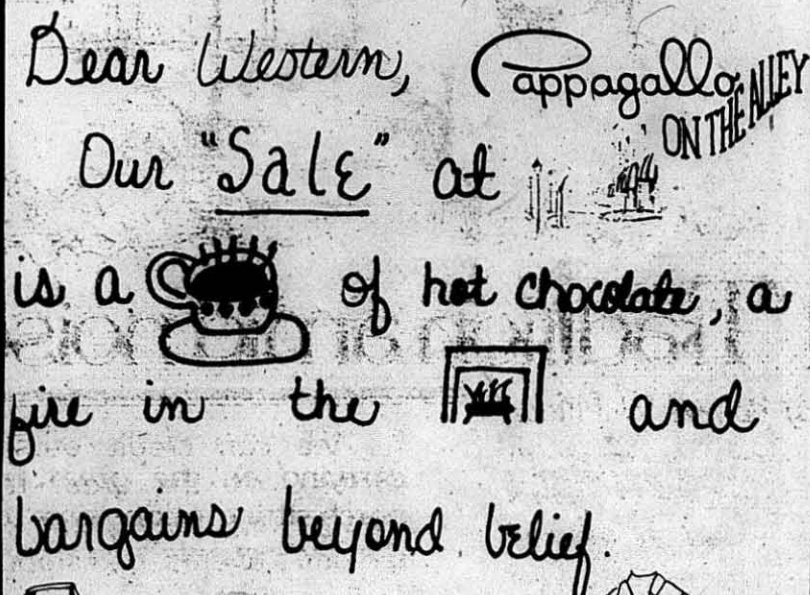 Dear Western, Pappagallo
ON THE ALLEY
Our "Sale" at
is a of hot chocolate, a
fire in the and
bargains beyond belief.